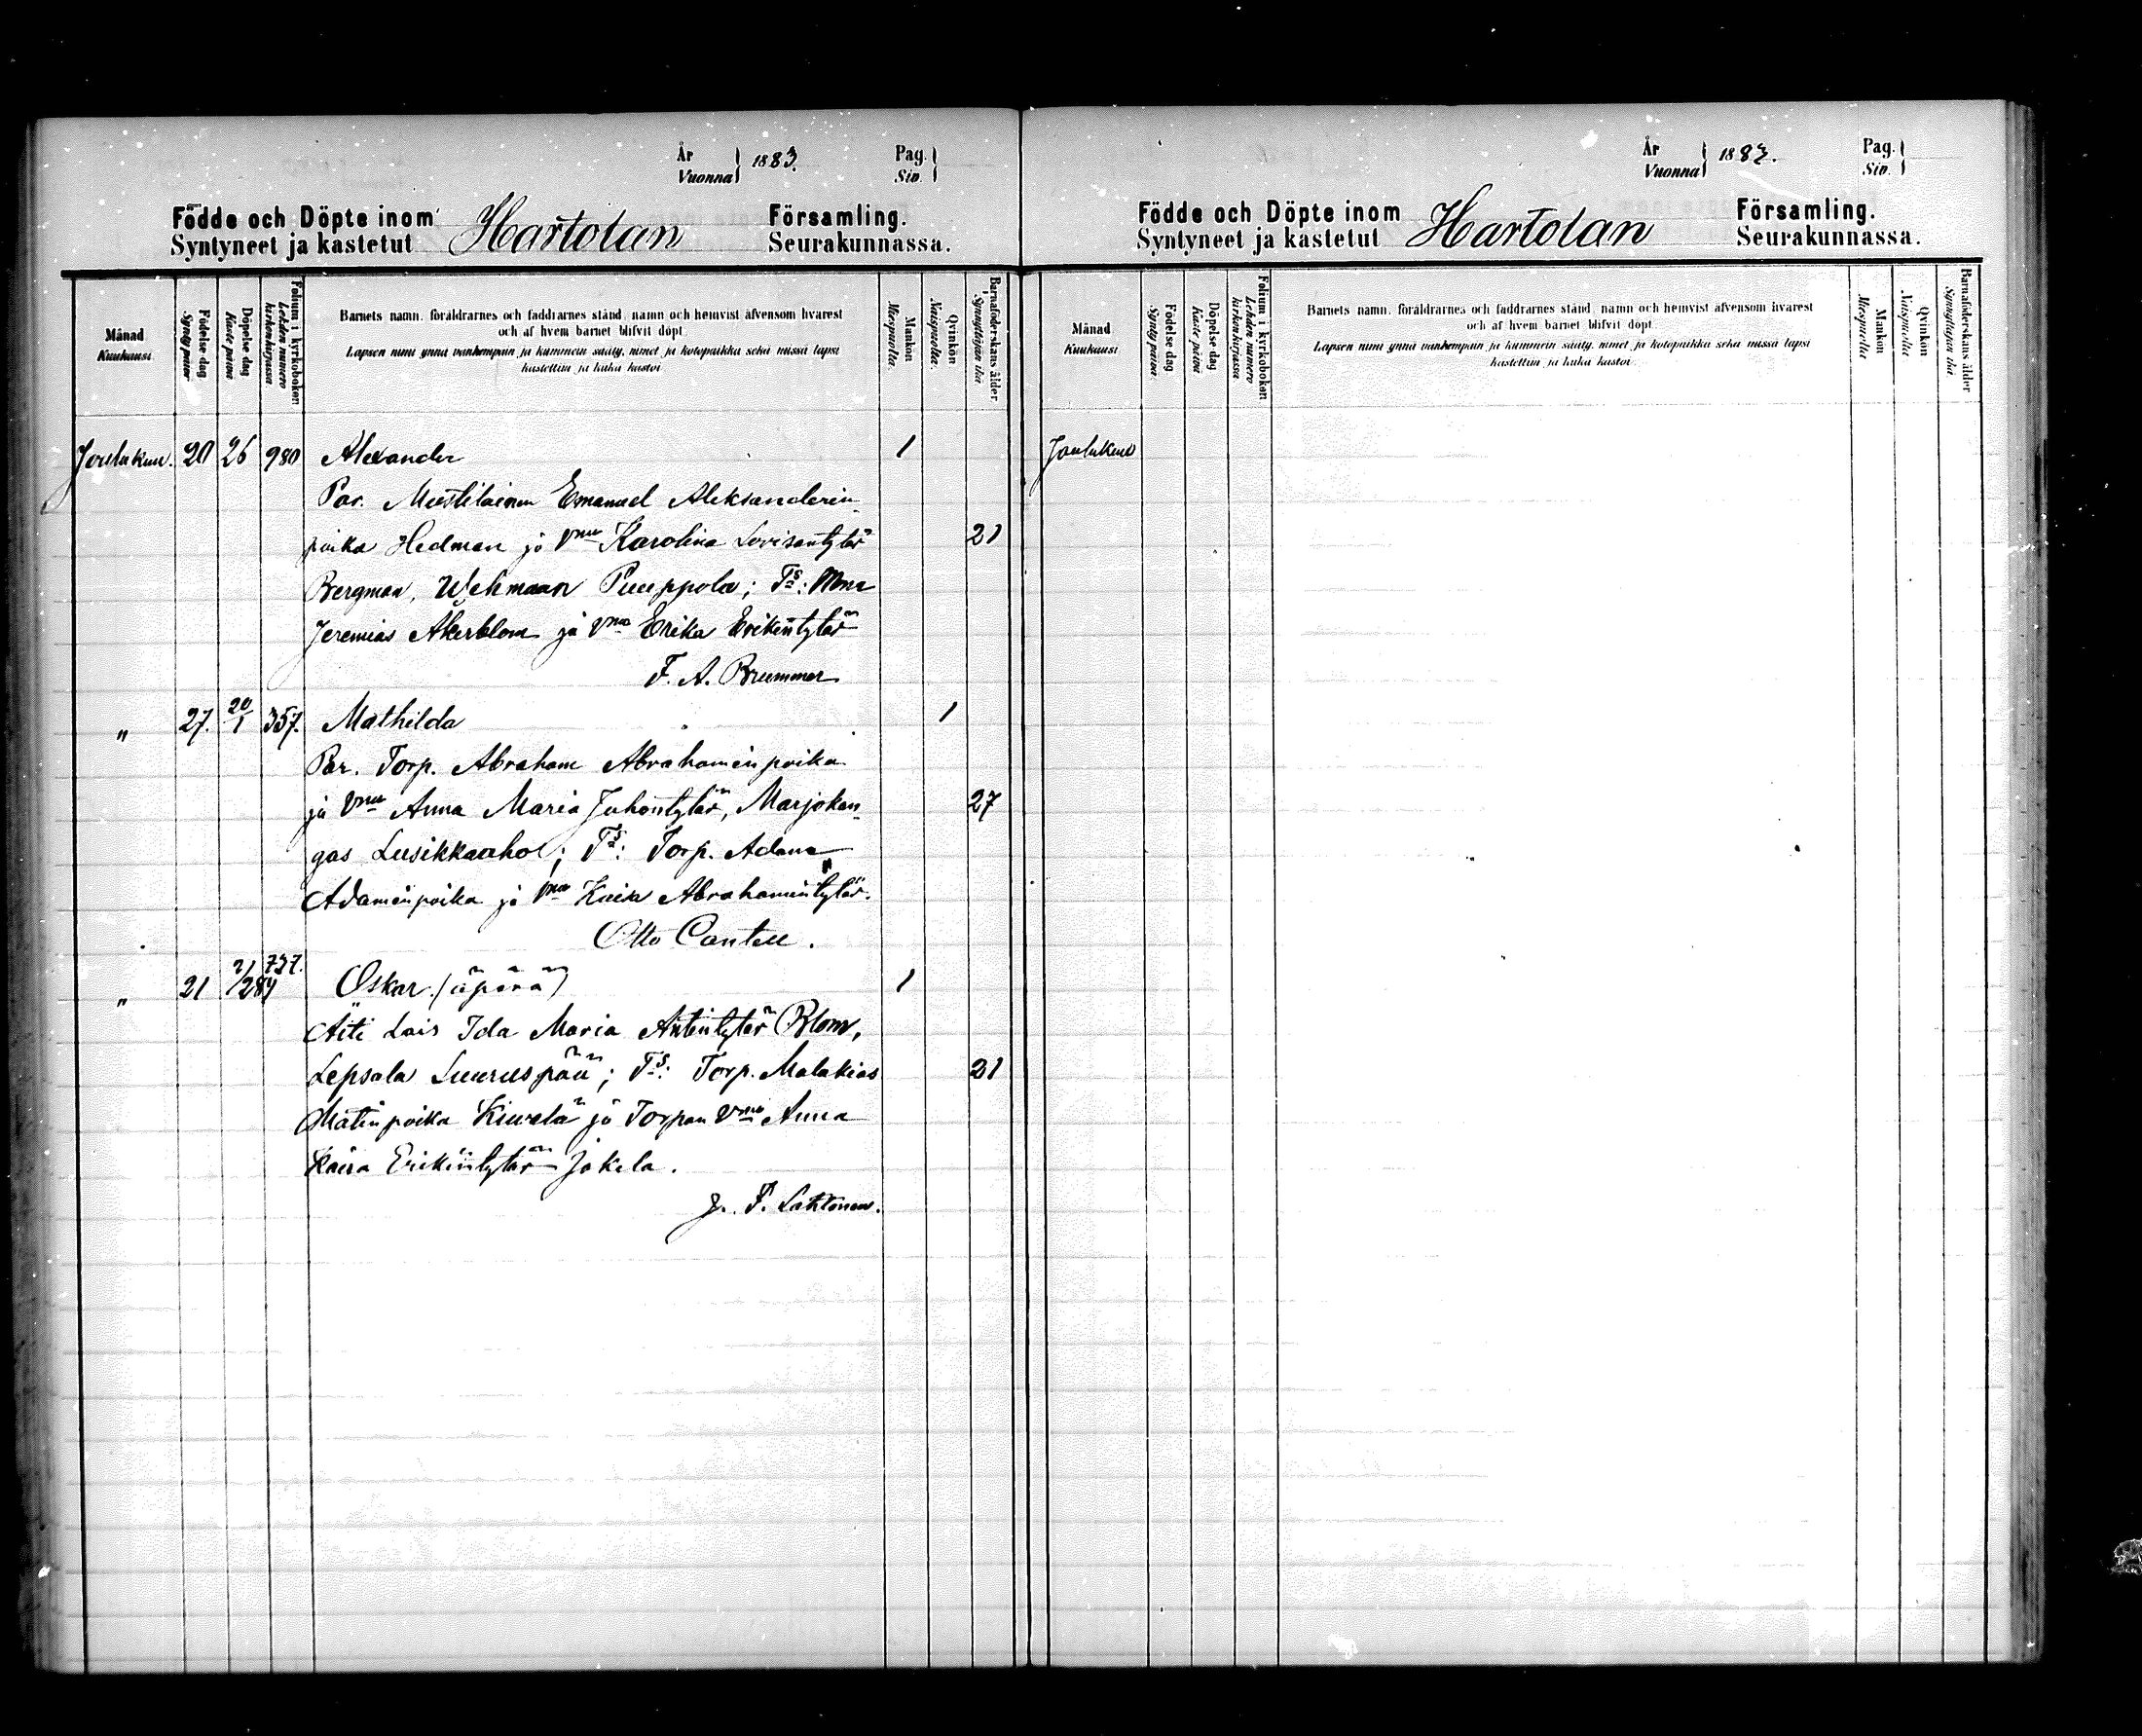 År
Vuonna 1883.
Pag.
Siv.
Födde och Döpte inom
Syntyneet ja kastetut
Hartolan
Församling.
Seurakunnassa.
Månad
Kuukausi
Födelse dag
Synty päivä
Döpelse dag
Kaste päivä
Folium i kyrkoboken
Lehden numero
kirkonkirjassa
Barnets namn, föräldrarnes och faddrarnes stånd, namn och hemvist äfvensom hvarest
och af hvem barnet blifvit döpt.
Lapsen nimi ynnä vanhempain ja kummein sääty, nimet ja kotopaikka sekä missä lapsi
kastettiin ja kuka kastoi
Mankön
Miespuolia.
Qvinkön
Naispuolia.
Barnaföderskans ålder
Synnyttäjän ikä
Joulukuu. 20 26 980 Alexander 1
Par. Mustilainen Emanuel Aleksanderin
poika Hedman ja Vmo Karolina Lovisantytär 21
Bergman, Wehmaan Puuppola; Ts:
Jeremias Åkerblom ja Vmo Erika Erikintytär
F. A. Brummer
" 27. 20/1 357. Mathilda 1
Par. Torp. Abraham Abrahaminpoika
ja Vmo Anna Maria Juhontytär, Marjokan 27
gas Lusikkaaho; Ts: Torp. Adam
Adaminpoika ja Vmo Kaisa Abrahamintytär.
Otto Cantell.
" 21 2/1 84 737. Oskar (äpärä) 1
Äiti Lois Ida Maria Antintytär Blom,
Lepsala Luuruspää; Ts: Torp. Malakias 21
Matinpoika Kiwelä ja Torpan Vmo Anna
Kaisa Erikintytär Jokela.
J. F. Lahtonen.
År
Vuonna 1883.
Pag.
Siv.
Födde och Döpte inom
Syntyneet ja kastetut
Hartolan
Församling.
Seurakunnassa.
Månad
Kuukausi
Födelse dag
Synty päivä
Döpelse dag
Kaste päivä
Folium i kyrkoboken
Lehden numero
kirkonkirjassa
Barnets namn, föräldrarnes och faddrarnes stånd, namn och hemvist äfvensom hvarest
och af hvem barnet blifvit döpt.
Lapsen nimi ynnä vanhempain ja kummein sääty, nimet ja kotopaikka sekä missä lapsi
kastettiin ja kuka kastoi
Mankön
Miespuolia
Qvinkön
Naispuolia
Barnaföderskans ålder
Synnyttäjän ikä
Joulukuu